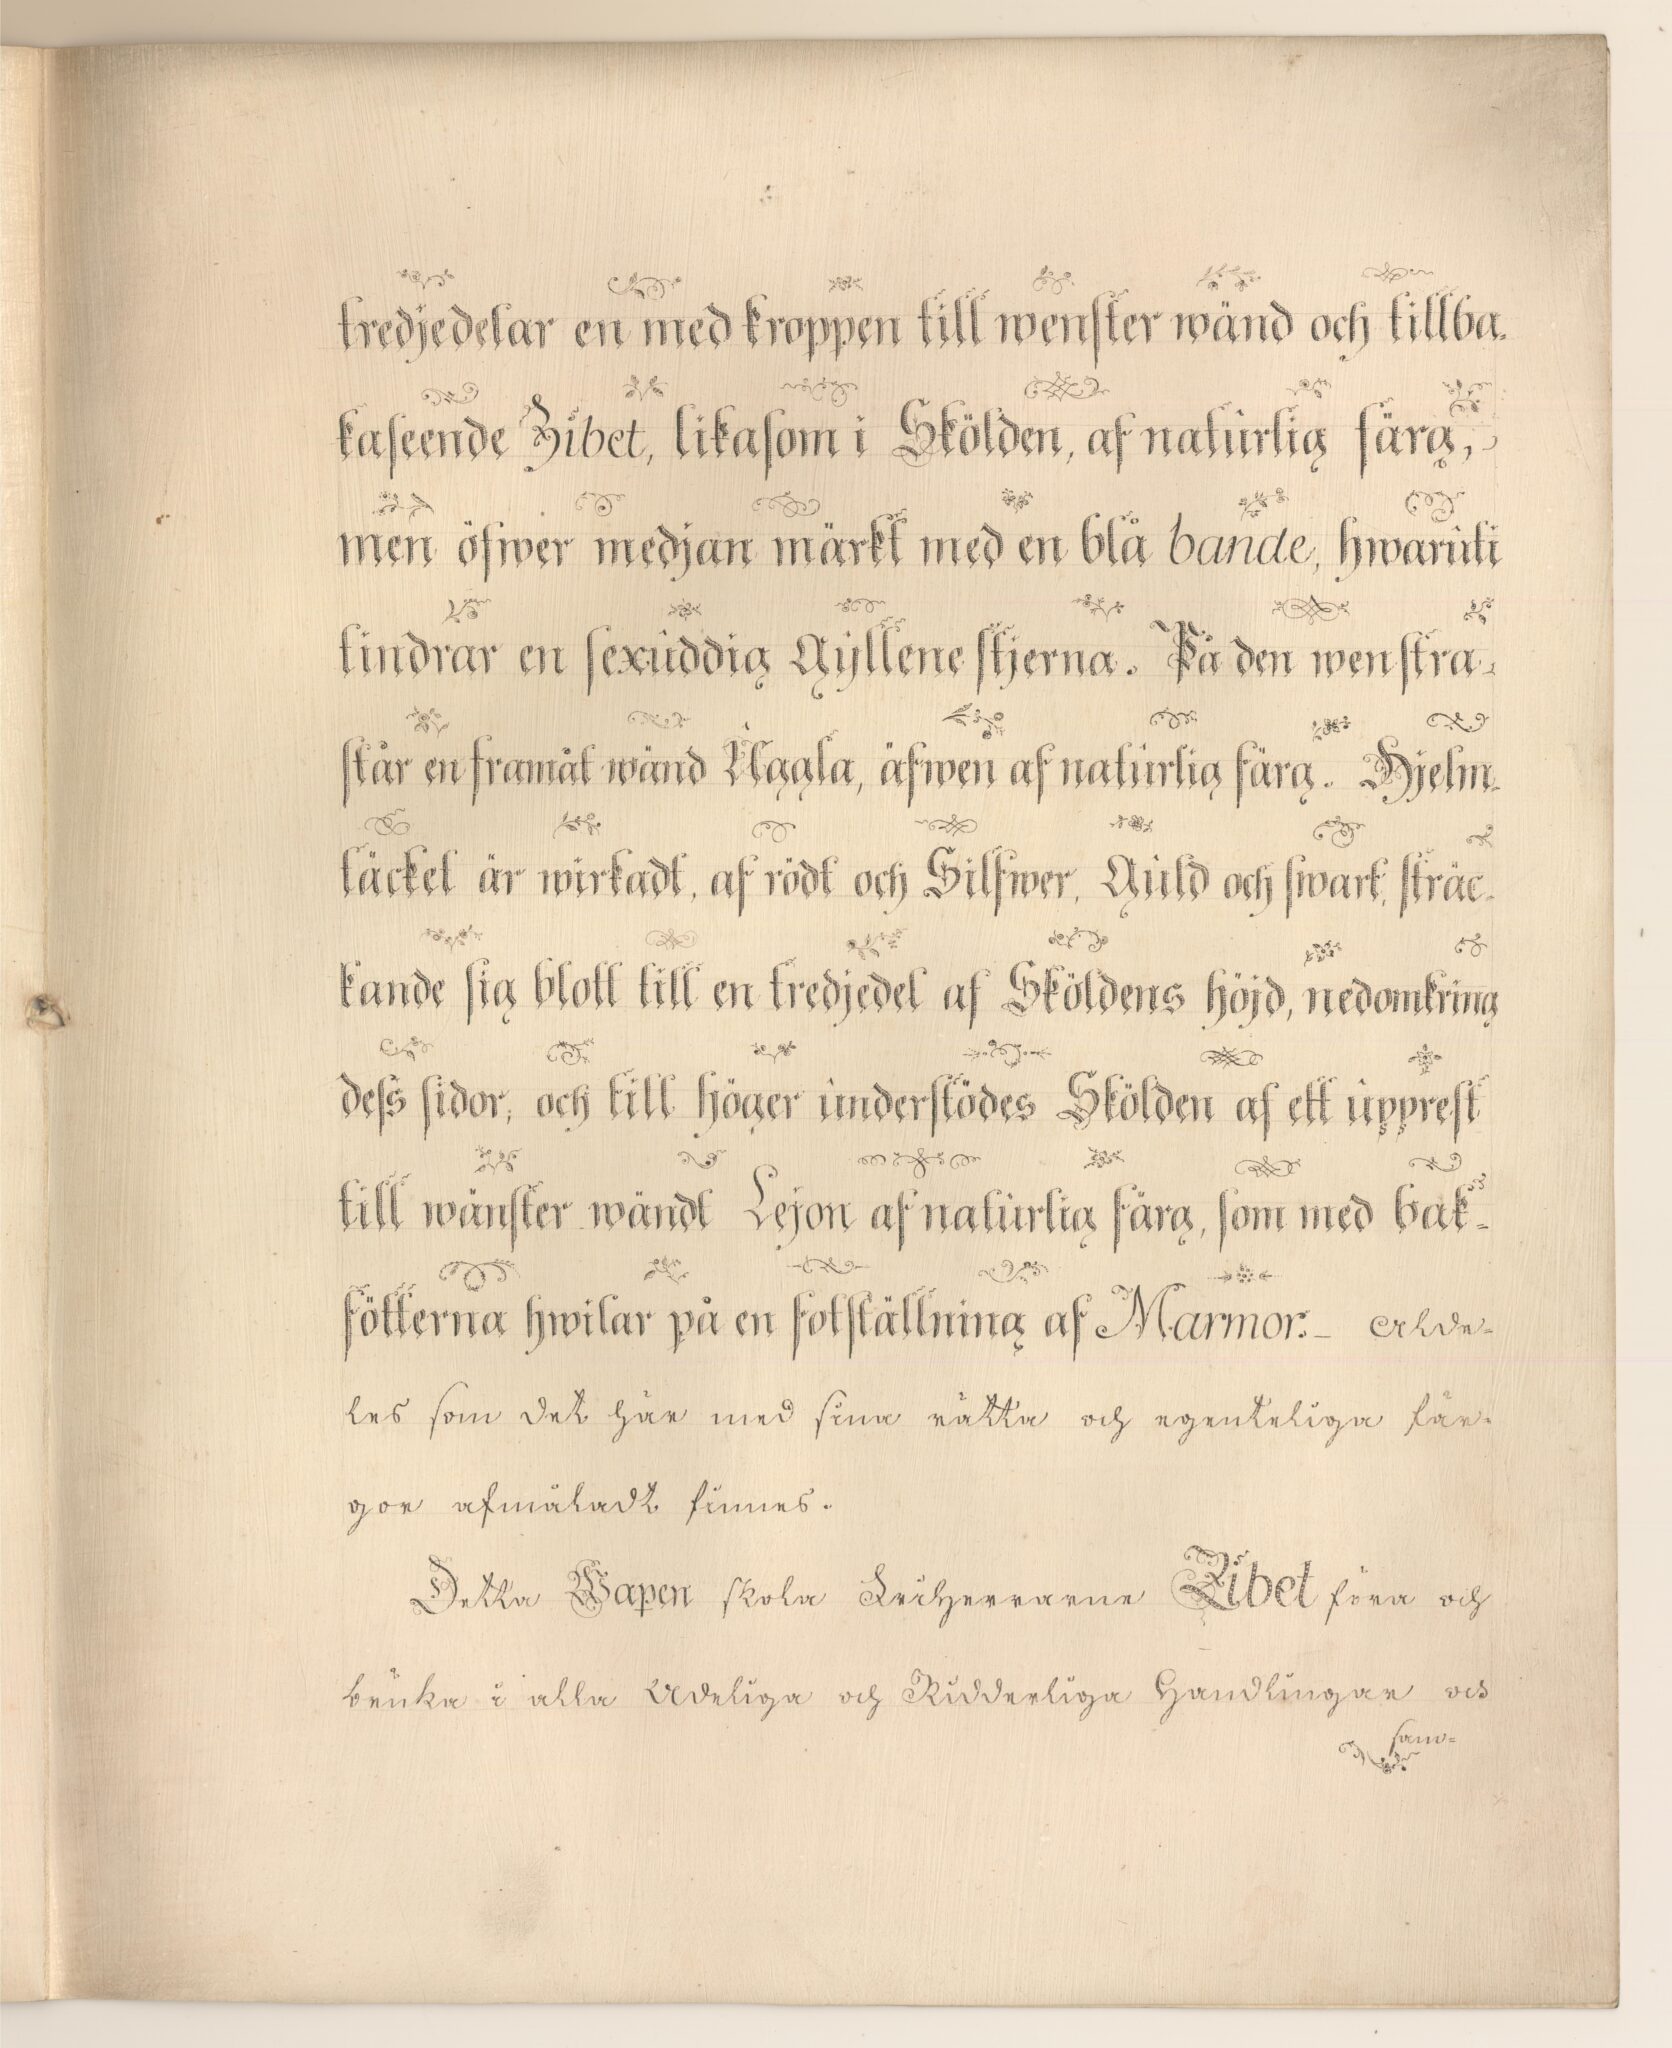 tredjedelar en med kroppen till wenster wänd och tillba-
kaseende Zibet, likasom i Skölden, af naturlig färg,
men öfwer medjan märkt med en blå bande, hwaruti
tindrar en sexuddig Gyllene stjerna. På den wenstra
står en framåt wänd Uggla, äfwen af naturlig färg. Hjelm-
täcket är wirkadt, af rödt och Silfwer, Guld och swart, sträc-
kande sig blott till en tredjedel af Sköldens höjd, nedomkring
dess sidor, och till höger understödes Skölden af ett upprest
till wänster wändt Lejon af naturlig färg, som med bak-
fötterna hwilar på en fotställning af Marmor. – Alde-
les som det här med sina rätta och egenteliga fär-
gor afmåladt finnes.
Detta Wapen skola FriHerrarne Zibet föra och
bruka i alla Adeliga och Ridderliga Handlingar och
saw-